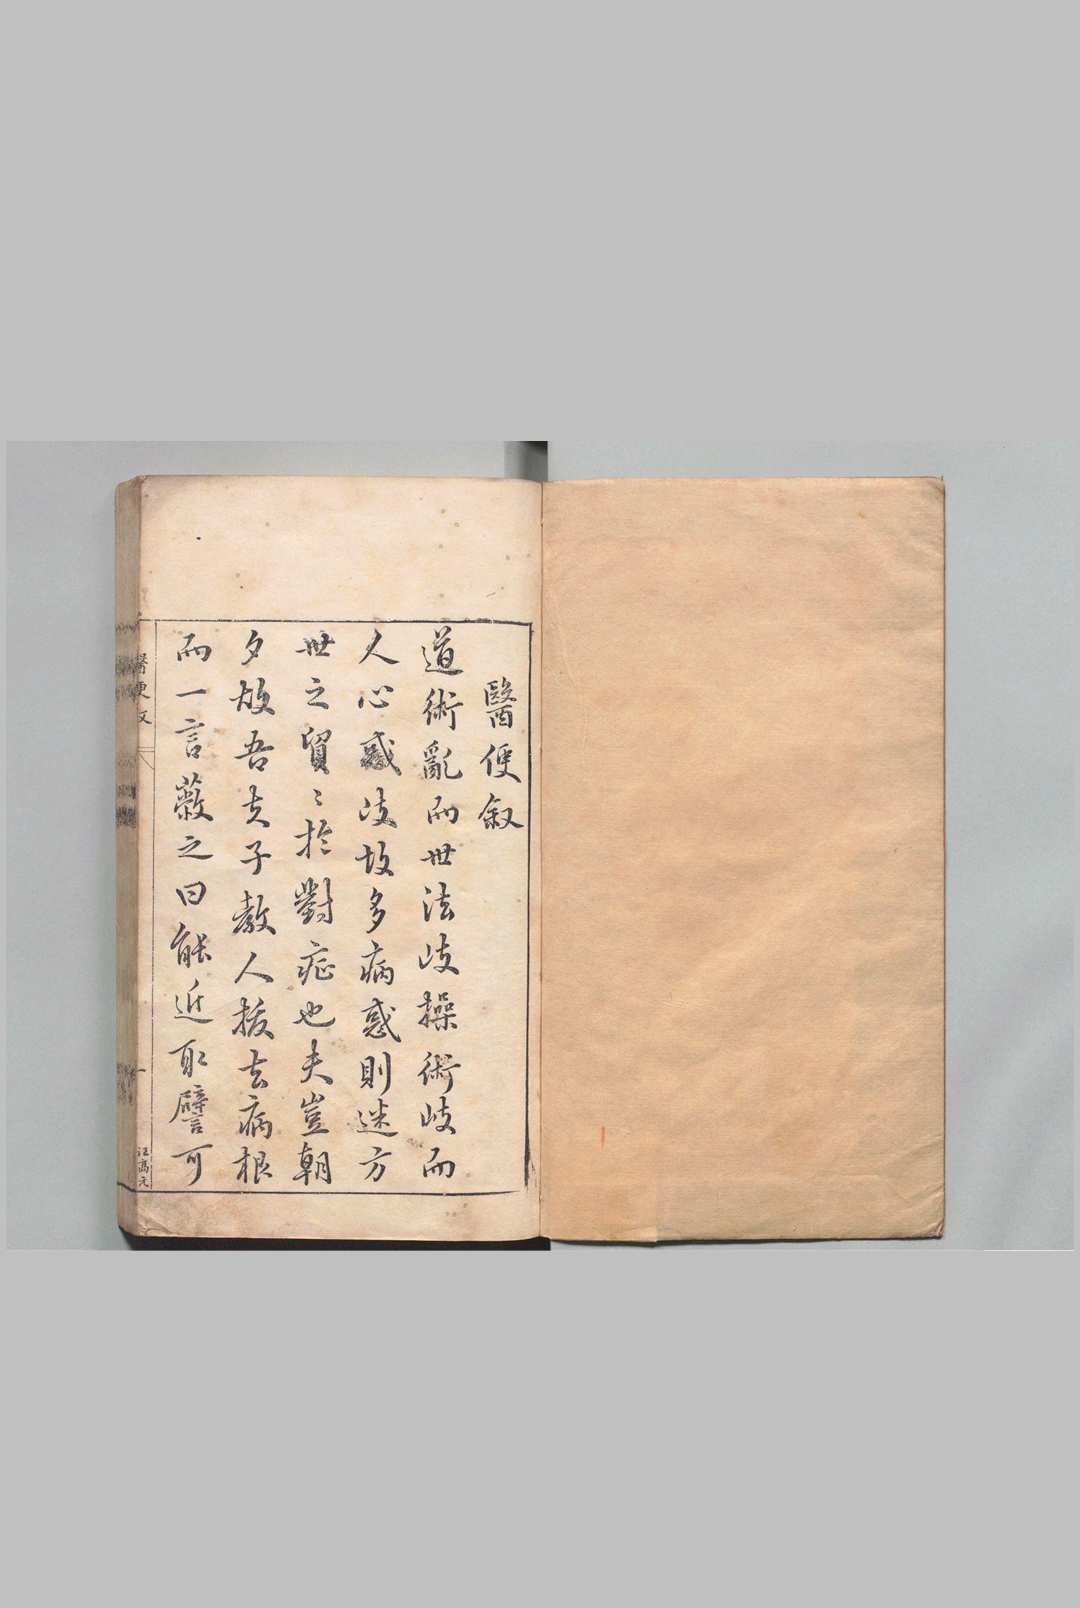 醫便叙
道術亂而世法歧操術歧而
人心惑歧故多病惑則迷方
世之貿〻於對症也夫豈朝
夕故吾夫子教人拔去病根
而一言蔽之曰能近取譬可
醫便叙
一